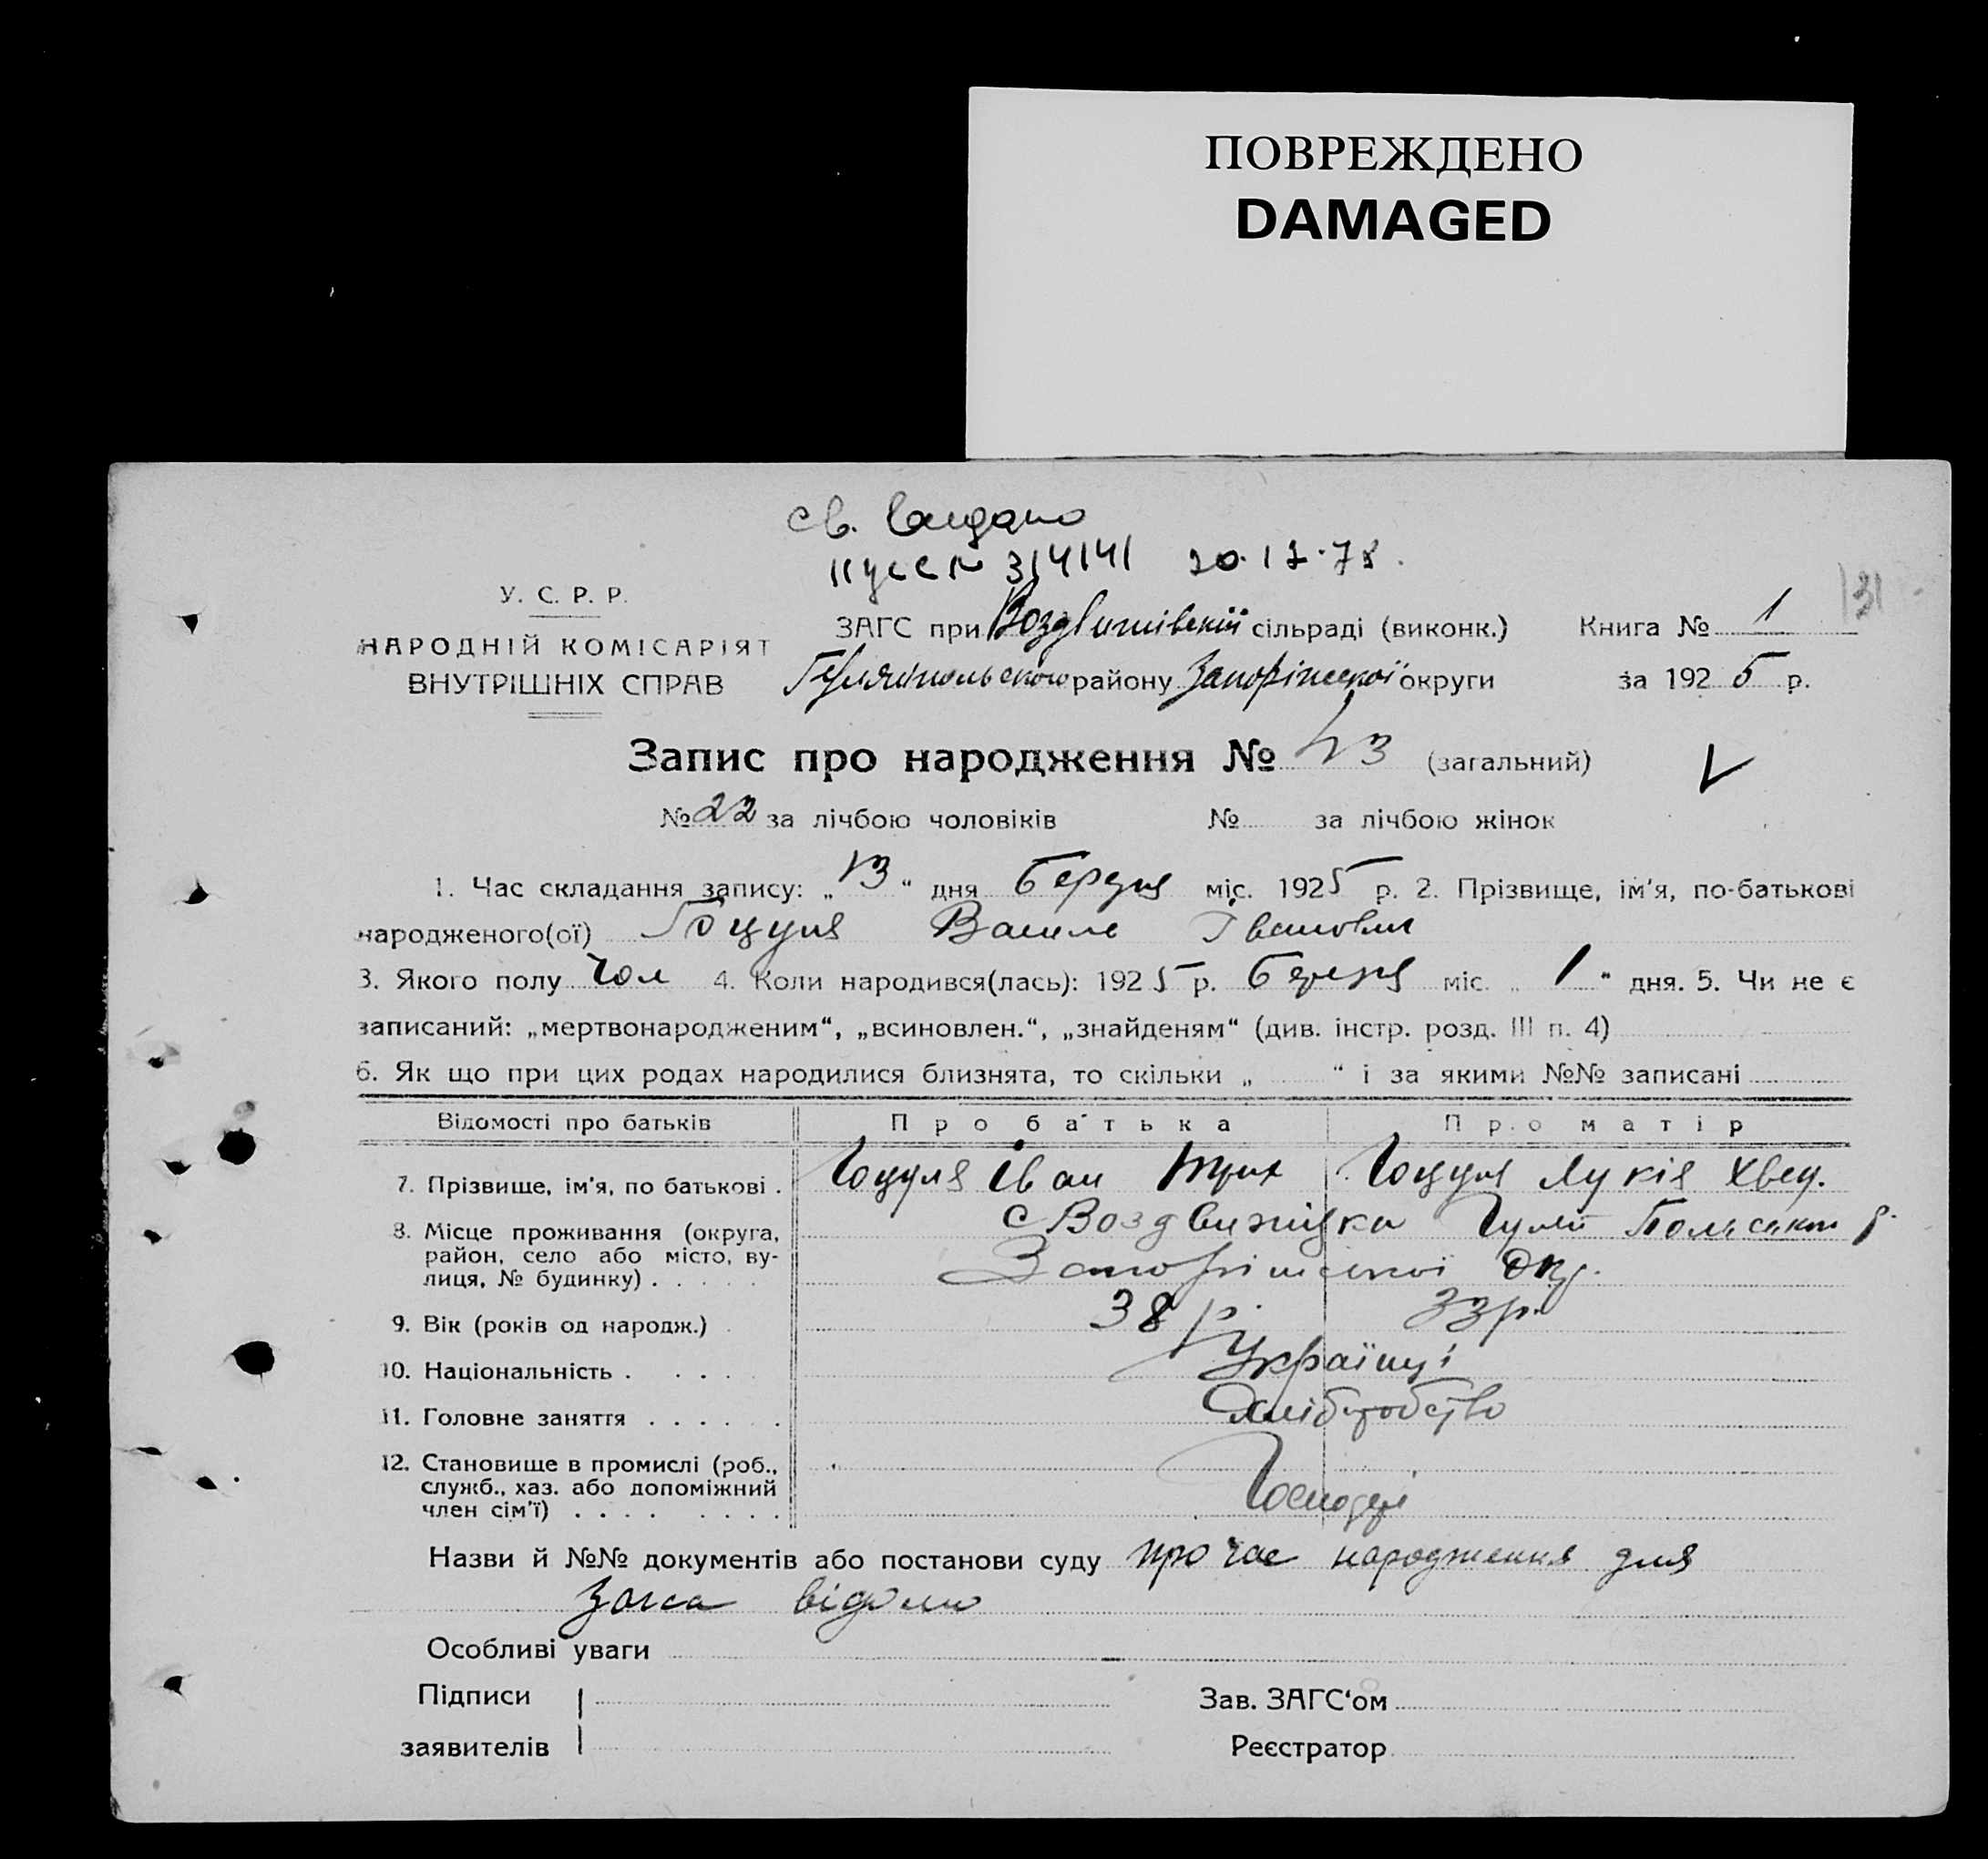 ПОВРЕЖДЕНО
DAMAGED
св. видано
20.12.78.
У. С. Р. Р.
НАРОДНІЙ КОМІСАРІЯТ
ВНУТРІШНІХ СПРАВ
ЗАГС при Воздвижівській сільраді (виконк.) Книга № 1 131
Гуляйпольського району Запоріжської округи за 1925 р.
Запис про народження № 43 (загальний)
№ 22 за лічбою чоловіків № за лічбою жінок
1. Час складання запису: „13“ дня березня міс. 1925 р. 2. Прізвище, ім'я, по-батькові
народженого(ої) Гоцуля Василь Іванович
3. Якого полу Чол 4. Коли народився(лась): 1925 р. березня міс. „1“ дня. 5. Чи не є
записаний: „мертвонародженим“, „всиновлен.“, „знайденям“ (див. інстр. розд. III п. 4)
6. Як що при цих родах народилися близнята, то скільки „ “ і за якими №№ записані
Відомості про батьків Про батька Про матір
7. Прізвище, ім'я, по батькові . Гоцуля Іван Гоцуля Лукія Хвед.
8. Місце проживання (округа,
район, село або місто, ву-
лиця, № будинку) . . . . . с Воздвижівка Гуляй Польськ р.
Запоріжської окр.
9. Вік (років од народж.) . 38 р. 33 р.
10. Національність . . . . . Українці
11. Головне заняття . . . . . . Хліборобство
12. Становище в промислі (роб.,
служб., хаз. або допоміжний
член сім'ї) . . . . . . . . Господарі
Назви й №№ документів або постанови суду про час народження для
загса відомо
Особливі уваги
Підписи
заявителів
Зав. ЗАГС‘ом
Реєстратор